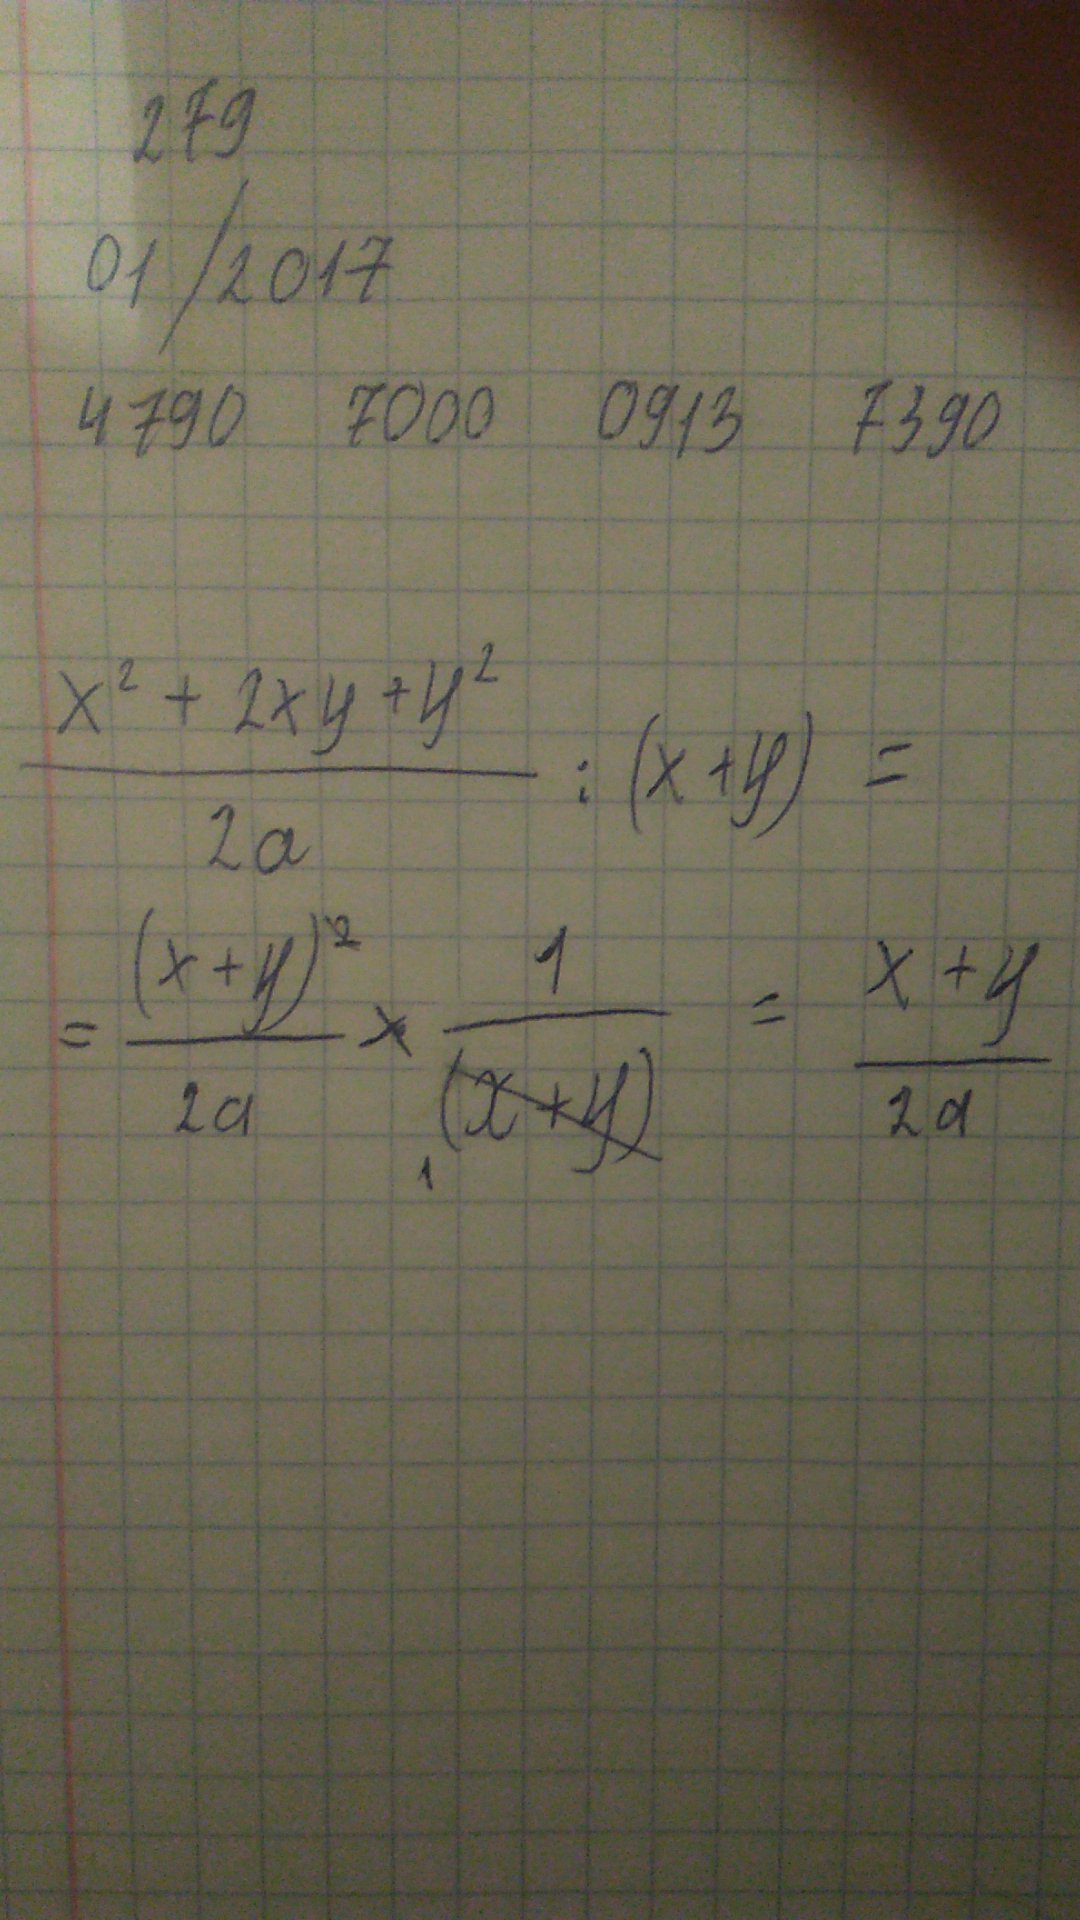 279
01/2017
4790 7000 0913 7390
x² + 2xy + y²
2a
: (x+y) =
= (x+y)²
2a
× 1
(x+y)
1
= x+y
2a